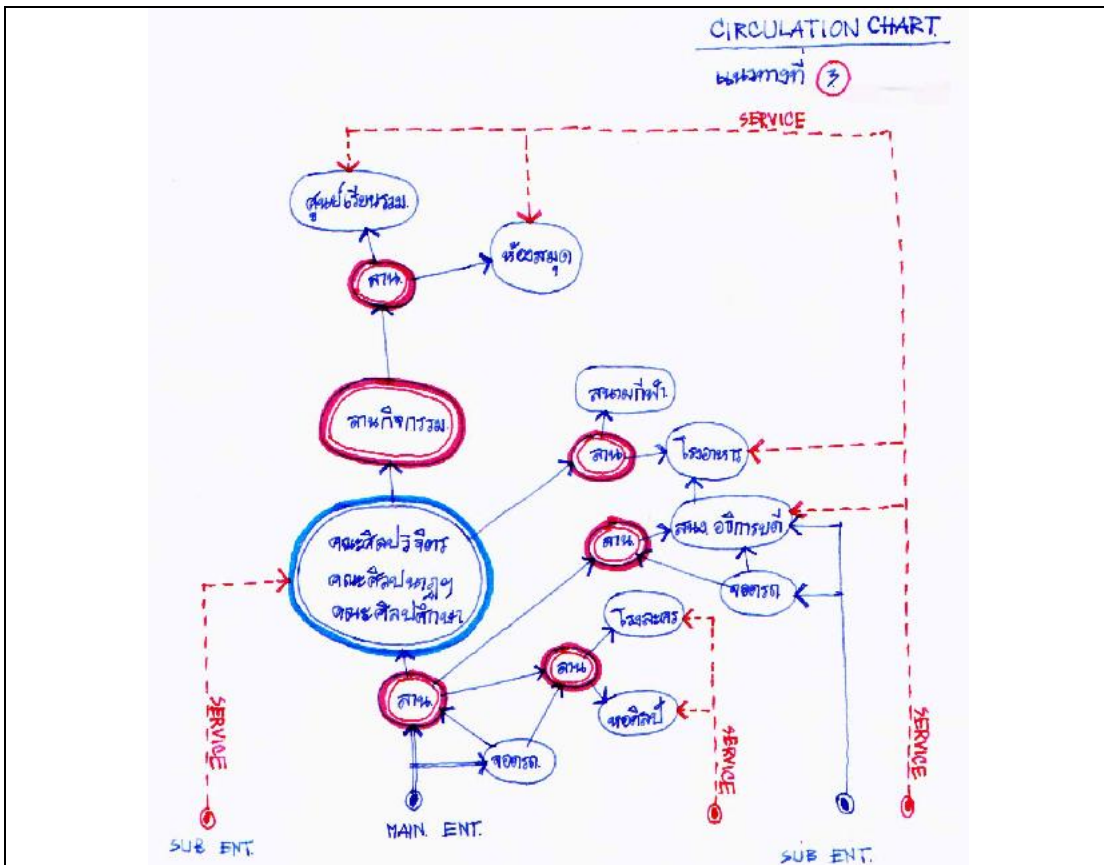 CIRCULATION CHART.
แนวทางที่ 3
SERVICE
ศูนย์เรียนรวม.
ห้องสมุด
ลาน.
สนามกีฬา.
ลานกิจกรรม.
ลาน
โรงอาหาร
คณะศิลปวิจิตร
คณะศิลปนาฏฯ
คณะศิลปศึกษา
ลาน.
สนง. อธิการบดี
จอดรถ
โรงละคร
ลาน
ลาน.
หอศิลป์
จอดรถ
SERVICE
SERVICE
SERVICE
MAIN. ENT.
SUB ENT.
SUB ENT.